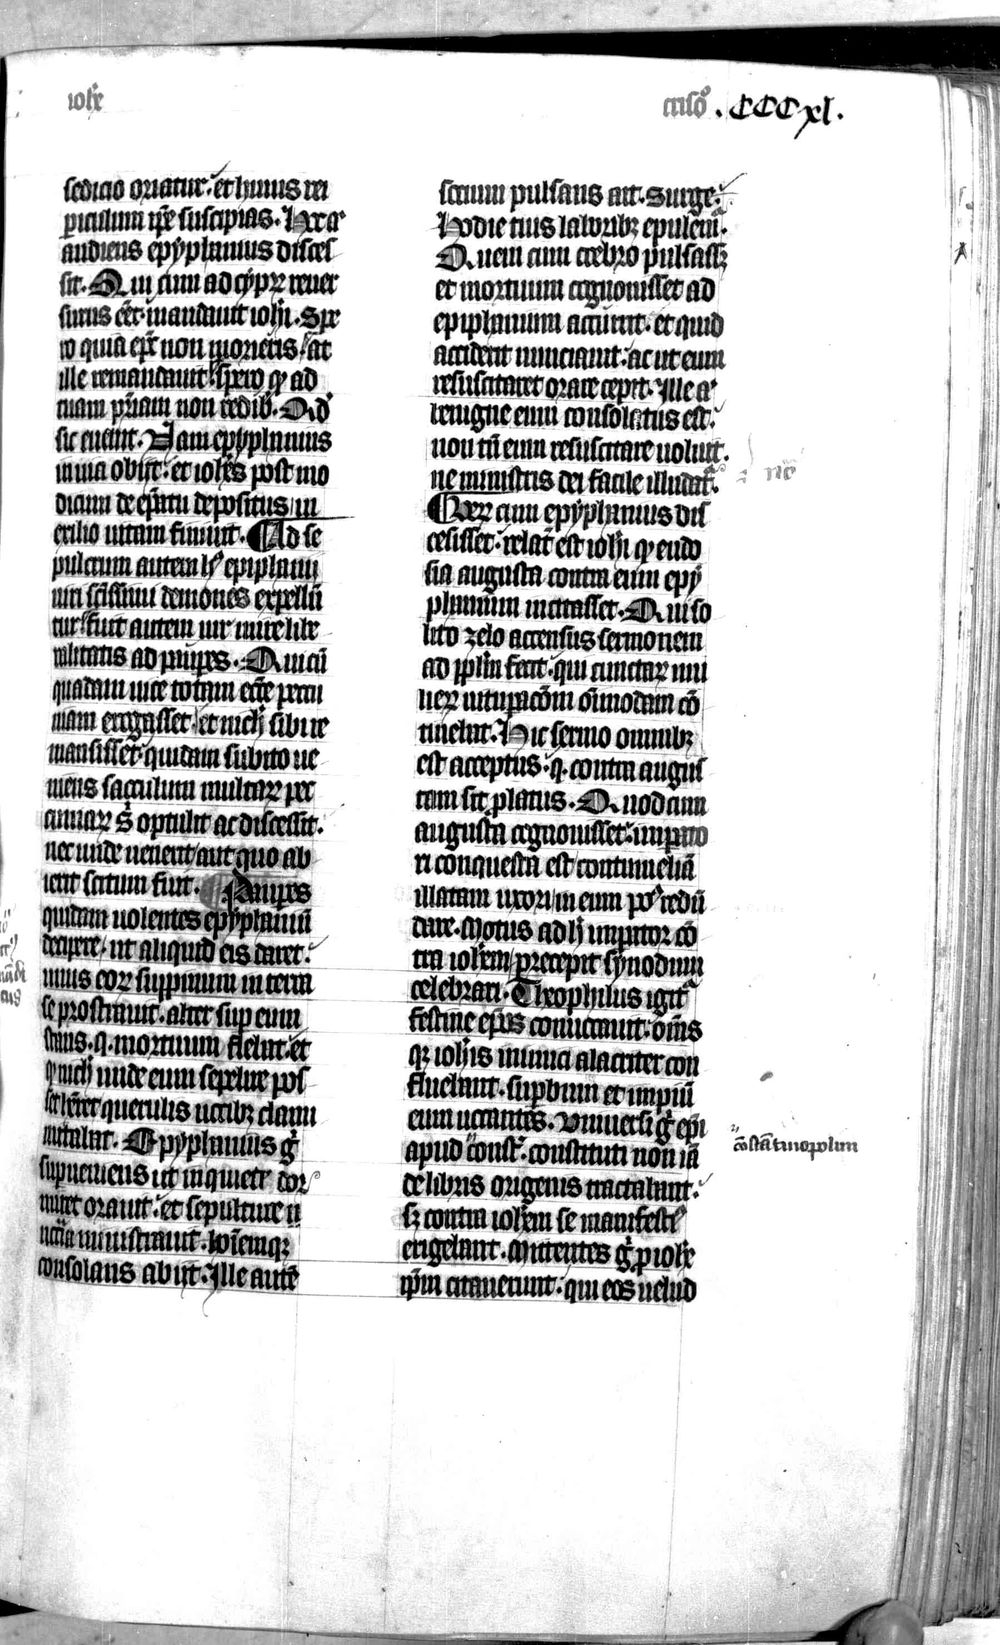 ioh̄e
crisoˢ .CCCxl.
sedicio oriatur. et huius rei
piculum ip̄e suscipias. Hec
audiens epyphanius disces
sit. Qui cum ad cypꝝ reuer
surus eēt. mandauit ioh̄i. Spe
ro quia ep̄c non morieris. at
ille remandauit. spero qꝫ ad
tuam pr̄iam non redibˢ. Qd̓
sic euenit. Nam epyphanius
in uia obijt. et ioh̄es post mo
dicum de ep̄atu depositus in
exilio uitam finiuit. Ad se
pulcrum autem hꝰ epiphanij
uiri sc̄issimi demones expellū
tur. fuit autem uir mire libe
ralitatis ad paup̄es. Qui cū
quadam uice totam ecc̄e pecu
niam erogasset et nichˡ sibi re
mansisset. quidam subito ue
niens sacculum multaꝝ pec
cuniaꝝ s̄ optulit ac discessit.
nec unde uenerit aut quo ab
ierit scitum fuit. Paup̄es
quidam uolentes epyphaniū
decipere. ut aliquid eis daret.
unus eoꝝ suppinum in terra
se prostrauit. alter sup eum
stans. q. mortuum flebat. et
qꝫ nichˡ unde eum sepelire pos
set hr̄et querulis uocibꝫ clami
mitabat. Epyphanius g̓
supueniens ut in quiete dor
miret orauit. et sepulture n
cc̄ia ministrauit. hoīemqꝫ
consolans abijt. Ille autē
socium pulsans ait. surge.
Hodie tuis laboribꝫ epulem̄.
Quem cum crebro pulsassꝫ
et mortuum cognouisset ad
epiphanium accurrit. et quid
accident nunciauit. ac ut eum
resuscitaret orare cepit. Ille
benigne eum consolatus est.
non tn̄ eum resuscitare uoluit.
ne ministris dei facile illudat̄.
Porꝝ cum epyphanius dis
cesisset. relat̄ est ioh̄i qꝫ eudo
sia augusta contra eum epy
phanium incitasset. Qui so
lito zelo accensus sermonem
ad pplm̄ fecit. qui cunctaꝝ mu
lieꝝ uituꝑacōm oīmodam cō
tinebat. Hic sermo omnibꝫ
est acceptus. q. contra augus
tam sit ꝓlatus. Quod cum
augusta cognouisset. impato
ri conquesta est contumeliā
illatam uxori in eum poˢ redū
dare. Motus ad hˡ impator cō
tra ioh̄em precepit synodum
celebrari. Theophilus igit̄
festine ep̄os conuocauit. oīns
qꝫ ioh̄is inimici alacriter con
fluebant. supbum et impiū
eum uocantes. Vniuersi g̓ ep̄i
apud const̄. constituti non iā
de libris origenis tractabant.
sꝫ contra ioh̄em se manifeste
erigebant. Mittentes g̓ p ioh̄e
ip̄m citauerunt. qui eos uelud
cōstātinopolim